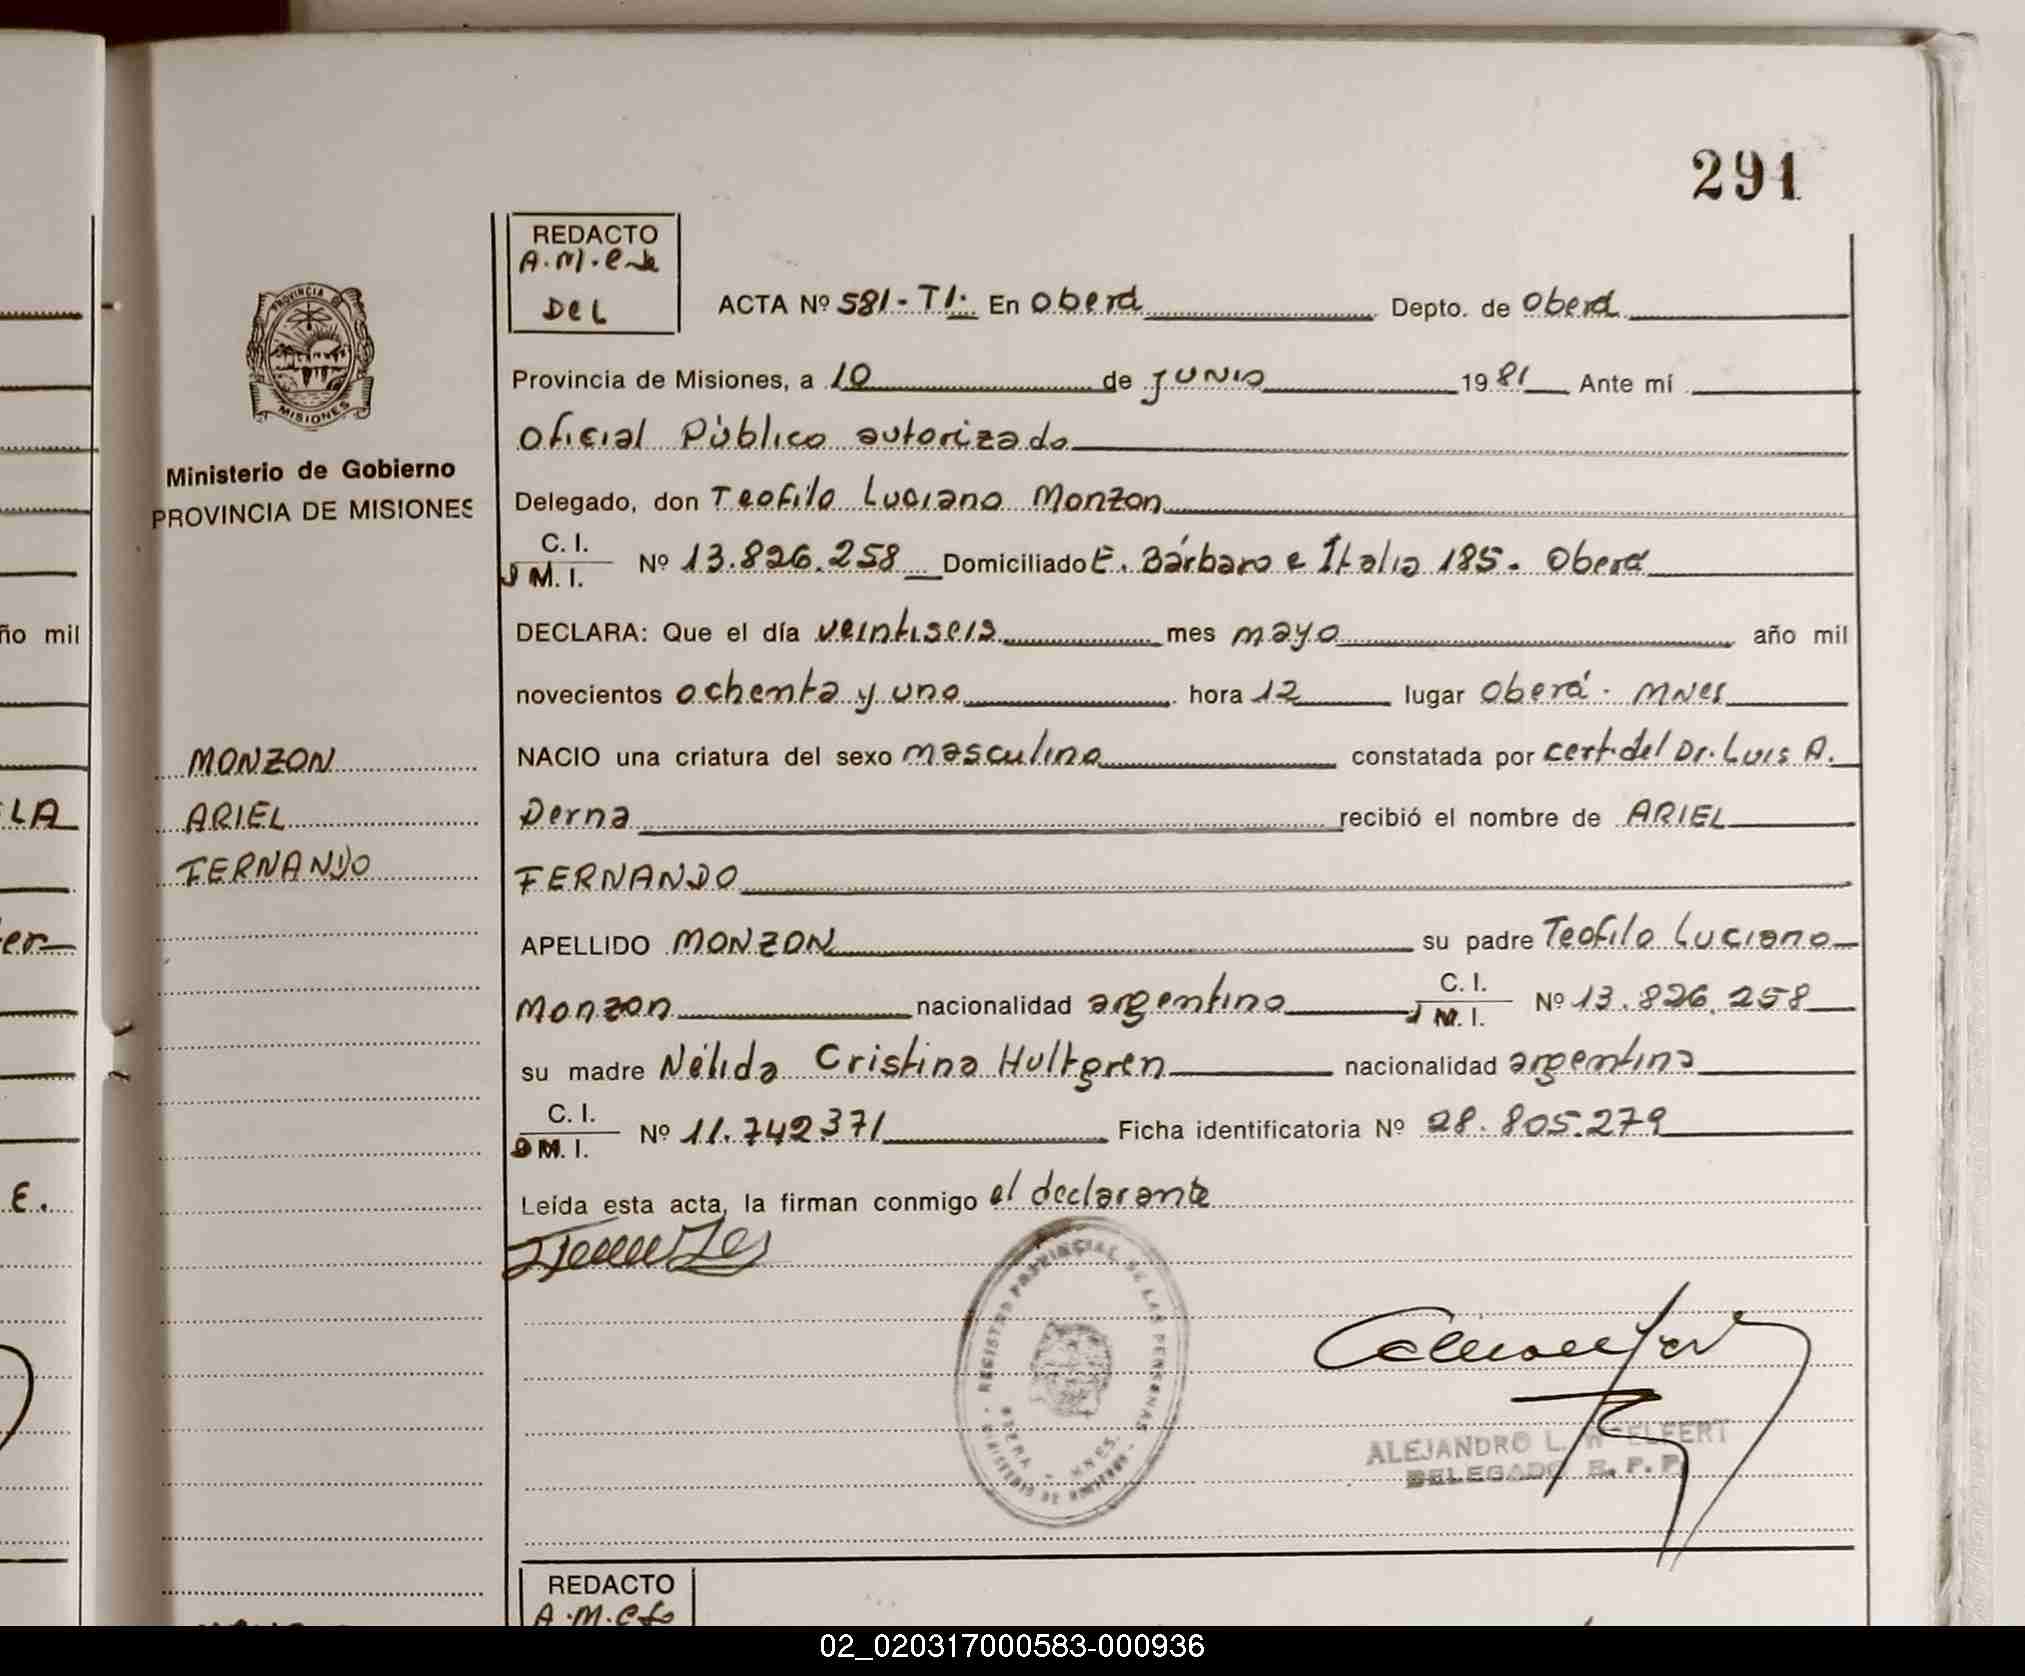 291
REDACTO
A.M.
Del
ACTA Nº 581-TI. En Oberá Depto. de Oberá
PROVINCIA
MISIONES
Provincia de Misiones, a 10 de junio 1981 Ante mí
Oficial Público autorizado
Ministerio de Gobierno
PROVINCIA DE MISIONES
Delegado, don Teofilo Luciano Monzon
C. I.
M. I. Nº 13.826.258 Domiciliado E. Bárbaro e Italia 185. Oberá
ño mil
DECLARA: Que el día veintiseis mes mayo año mil
novecientos ochenta y uno hora 12 lugar Oberá. Mnes
MONZON
NACIO una criatura del sexo masculino constatada por cert. del Dr. Luis A.
LA
ARIEL
Derna recibió el nombre de ARIEL
FERNANDO
FERNANDO
er
APELLIDO MONZON su padre Teofilo Luciano
Monzon nacionalidad argentino C. I.
M. I. Nº 13.826.258
su madre Nélida Cristina Hultgren nacionalidad argentina
C. I.
M. I. Nº 11.742.371 Ficha identificatoria Nº 28.805.279
E.
Leída esta acta, la firman conmigo el declarante
REGISTRO PROVINCIAL DE LAS PERSONAS
MINISTERIO DE GOBIERNO
OBERA MNES.
ALEJANDRO L. WOELFERT
DELEGADO R. P. P.
REDACTO
A.M.
02_020317000583-000936